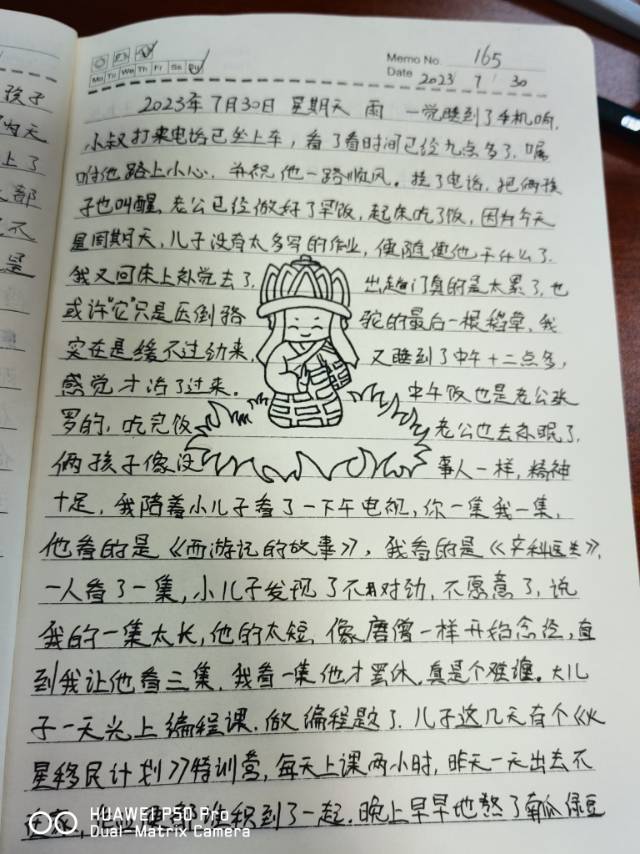 孩子
内天
上了
大部
是
Mo Tu We Th Fr Sa Su
Memo No. 165
Date 2023 / 7 / 30
2023年7月30日 星期天 雨 一觉睡到了手机响,
小叔打来电话已坐上车,看了看时间已经九点多了.嘱
咐他路上小心,并祝他一路顺风。挂了电话,把俩孩
子也叫醒.老公已经做好了早饭,起床吃了饭,因为今天
星期天,儿子没有太多写的作业,便随他干什么了.
我又回床上补觉去了, 出趟门真的是太累了,也
或许"它"只是压倒骆 驼的最后一根稻草,我
实在是缓不过劲来, 又睡到了中午十二点多,
感觉才活了过来。 中午饭也是老公张
罗的,吃完饭 老公也去补眠了,
俩孩子像没 事人一样,精神
十足,我陪着小儿子看了一下午电视,你一集我一集,
他看的是《西游记的故事》,我看的是《产科医生》,
一人看了一集,小儿子发现了不对劲,不愿意了,说
我的一集太长,他的太短,像唐僧一样开始念经,直
到我让他看三集,我看一集他才罢休.真是个难缠。大儿
子一天光上编程课.做编程题了.儿子这几天有个《火
星移民计划》特训营,每天上课两小时,昨天一天出去不
积到了一起.晚上早早地熬了南瓜绿豆
HUAWEI P50 Pro
Dual-Matrix Camera